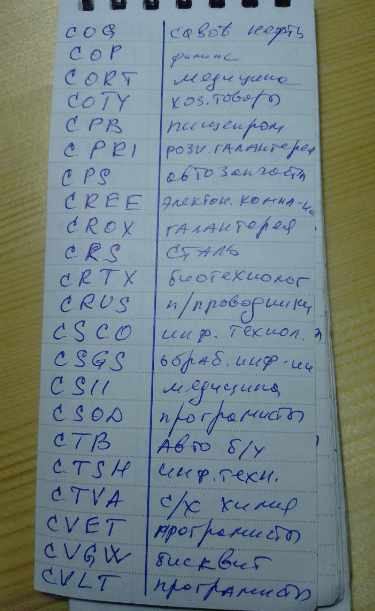 COG савов нефть
COP финанс
CORT медицина
COTY хоз.товары
CPB пищепром
CPRI розн.галантерея
CPS автозапчасти
CREE электон. компл-ие
CROX галантерея
CRS сталь
CRTX биотехнолог
CRUS п/проводники
CSCO инф. технол.
CSGS обраб.инф-ии
CSII медицина
CSOD программисты
CTB Авто б/у
CTSH инф.техн.
CTVA с/х химия
CVET программисты
CVGW бисквит
CVLT программисты